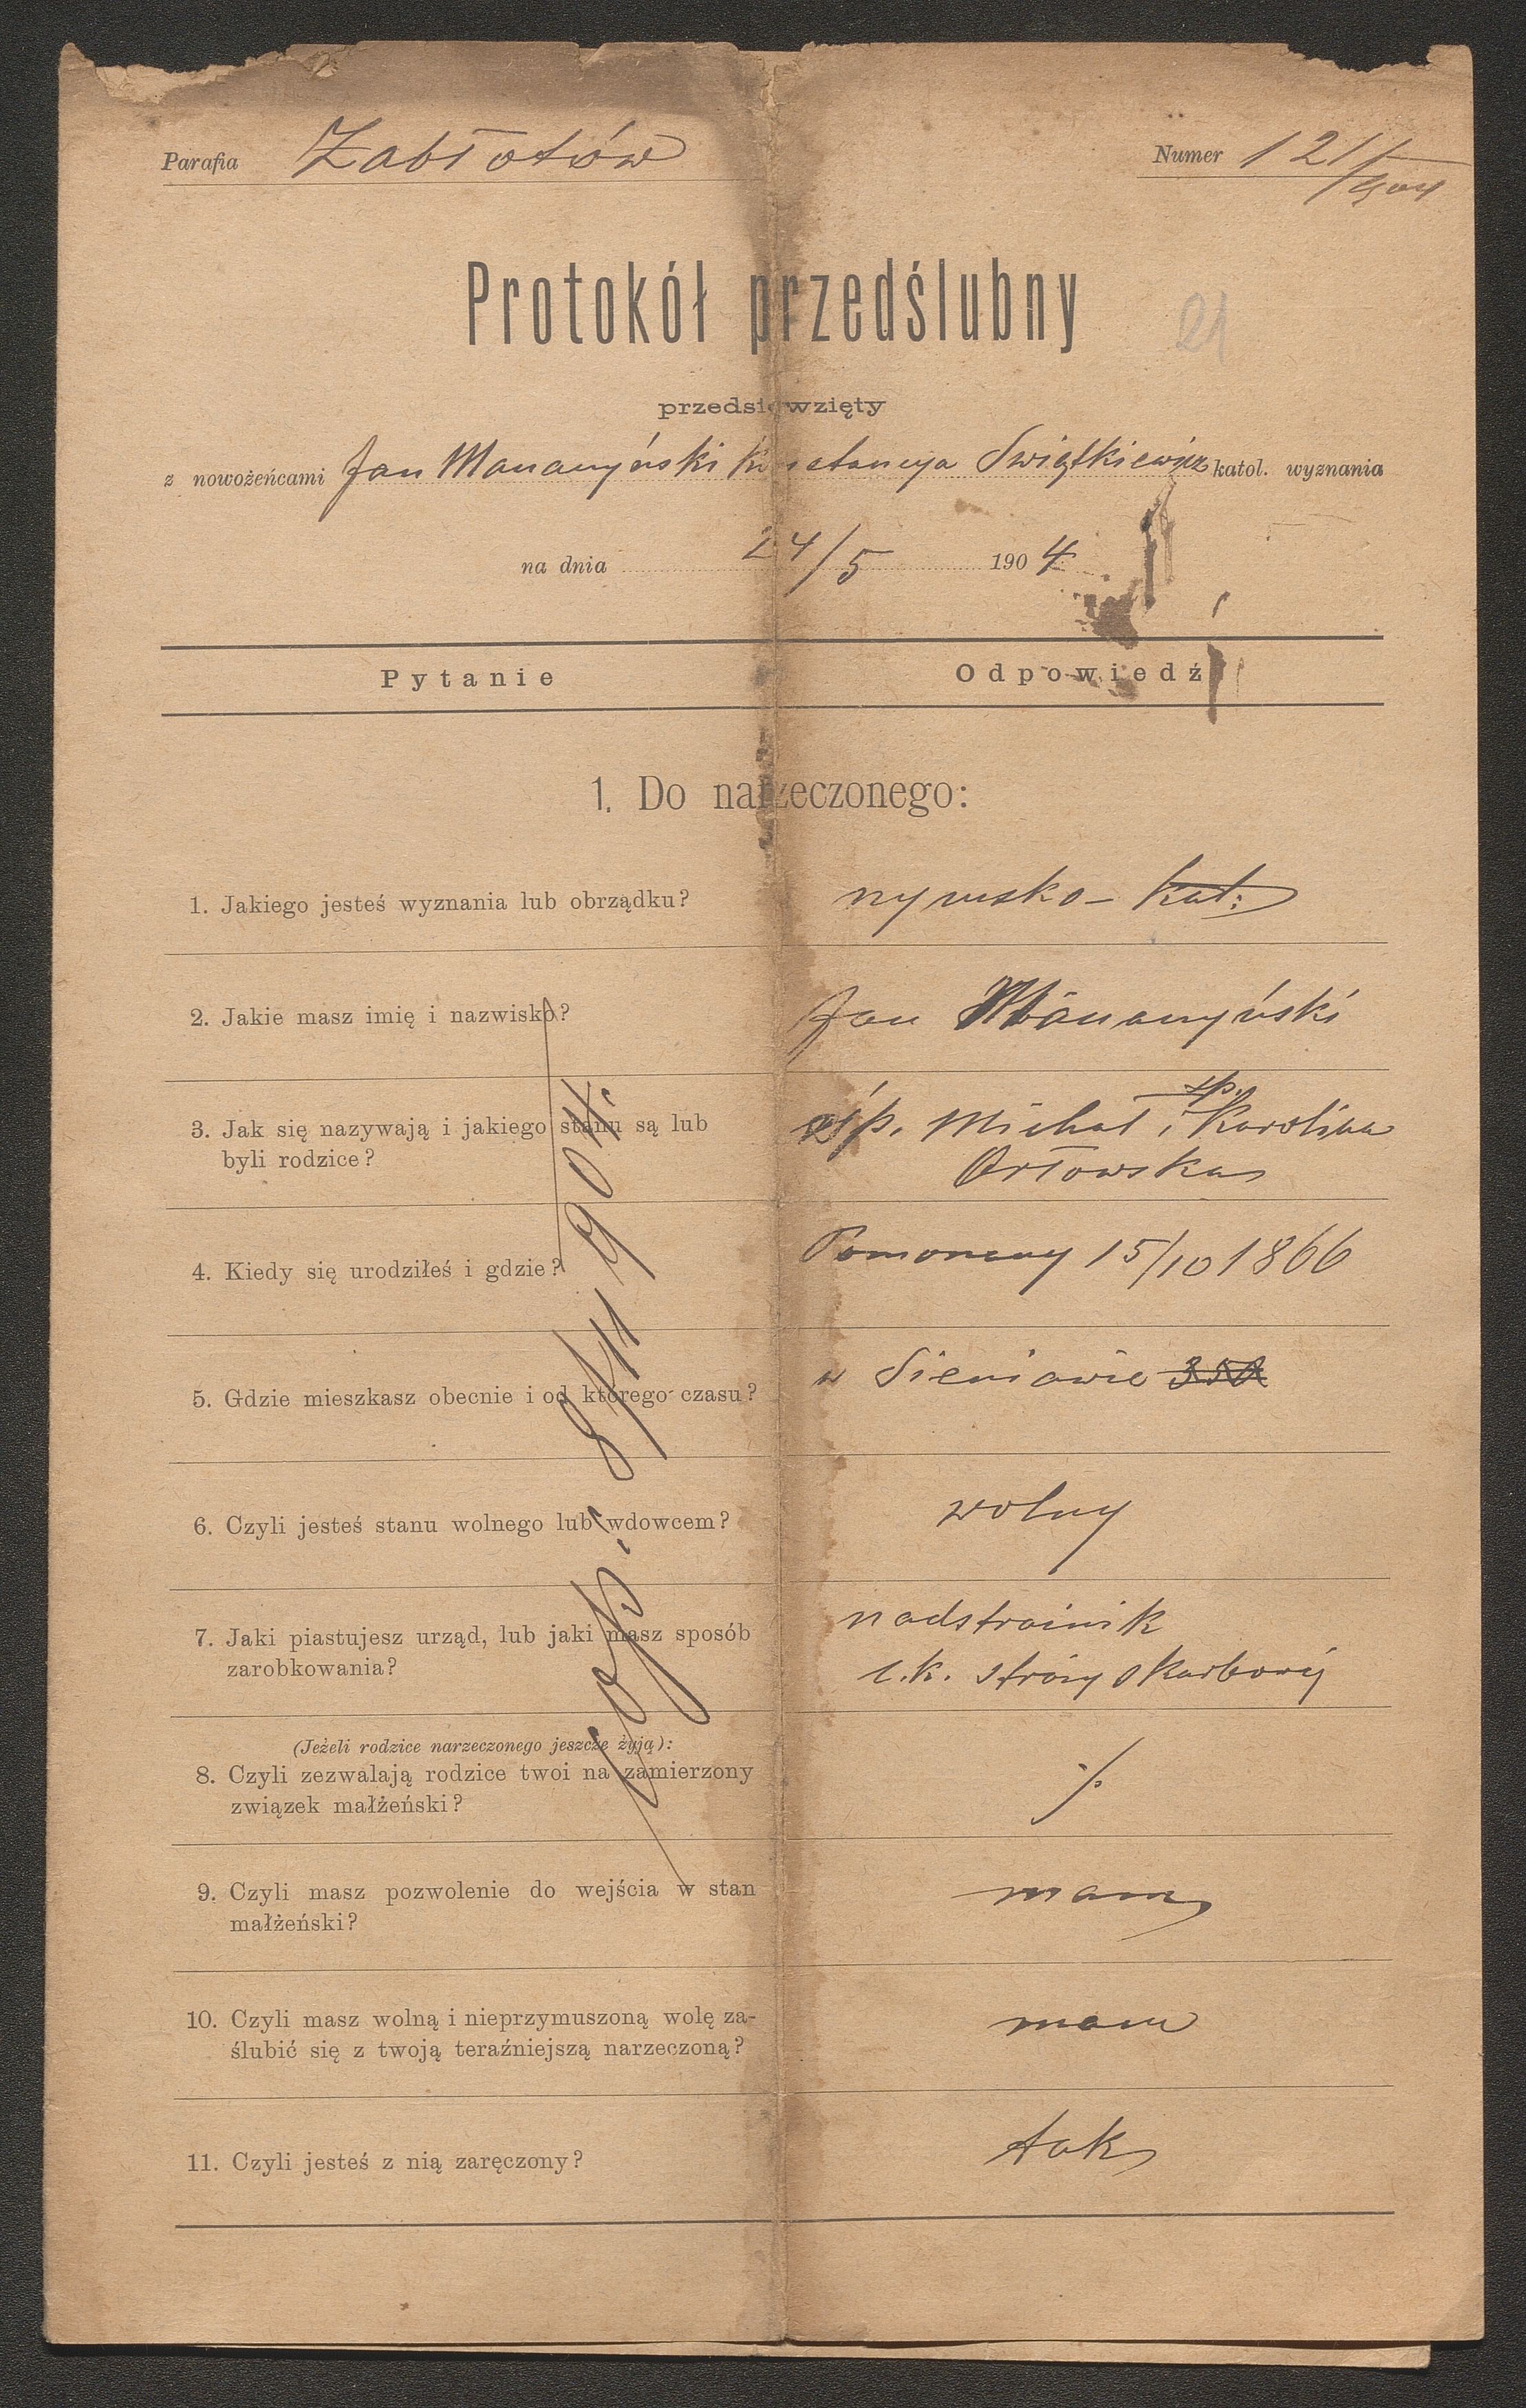 Parafia Zabłotów
Numer 121/904
Protokół przedślubny
21
przedsięwzięty
z nowożeńcami Jan Manaryński Konstancya Świątkiewicz katol. wyznania
na dnia 24/5 1904
Pytanie
Odpowiedź
1. Do narzeczonego:
1. Jakiego jesteś wyznania lub obrządku?
rzymsko-kat:
2. Jakie masz imię i nazwisko?
Jan
3. Jak się nazywają i jakiego stanu są lub
byli rodzice?
śp. Michał i śp. Karolina
Orłowska
4. Kiedy się urodziłeś i gdzie?
15/10 1866
5. Gdzie mieszkasz obecnie i od którego czasu?
w Sieniawie
6. Czyli jesteś stanu wolnego lub wdowcem?
wolny
7. Jaki piastujesz urząd, lub jaki masz sposób
zarobkowania?
nadstrażnik
c.k. straży skarbowej
(Jeżeli rodzice narzeczonego jeszcze żyją):
8. Czyli zezwalają rodzice twoi na zamierzony
związek małżeński?
./.
9. Czyli masz pozwolenie do wejścia w stan
małżeński?
mam
10. Czyli masz wolną i nieprzymuszoną wolę za-
ślubić się z twoją teraźniejszą narzeczoną?
mam
11. Czyli jesteś z nią zaręczony?
tak
8/11 904.